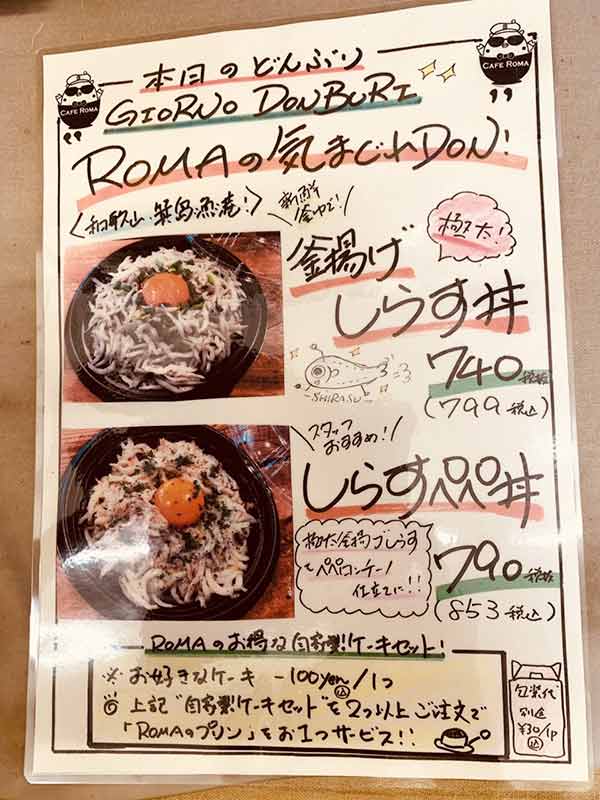 本日のどんぶり
GIORNO DONBURI
CAFE ROMA
CAFE ROMA
"ROMAの気まぐれDON!"
〈和歌山・箕島漁港!〉
新鮮
釜ゆで!
極太!
釜揚げ
しらす丼
SHIRASU
740 税抜
(799 税込)
スタッフ
おすすめ!
しらすペペ丼
極太釜揚げしらす
をペペロンチーノ
仕立てに!!
790 税抜
(853 税込)
ROMAのお得な自家製ケーキセット!
※ お好きなケーキ -100yen/1つ
込
◎ 上記"自家製ケーキセット"を2つ以上ご注文で
「ROMAのプリン」をお1つサービス!!
包装代
別途
¥30/1p
込